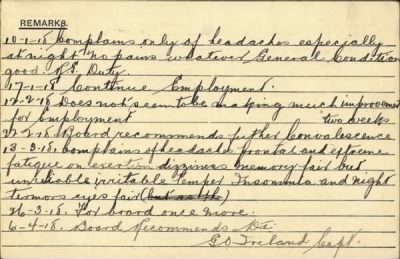 REMARKS.
10-1-18 Complains only of headaches especially
at night no pains whatever General Condition
good. Duty
17-1-18 Continue Employment.
12-2-18 Does not seem to be making much improvement
for Employment two weeks
22-2-18 Board recommends further Convalescence
13-3-18. Complains of headache frontal and extreme
fatigue on exertion dizziness memory fair but
unreliable irritable temper Insomnia and night
terrors eyes fair
26-3-18. For board once more.
6-4-18. Board Recommends
G.O. Ireland Capt.